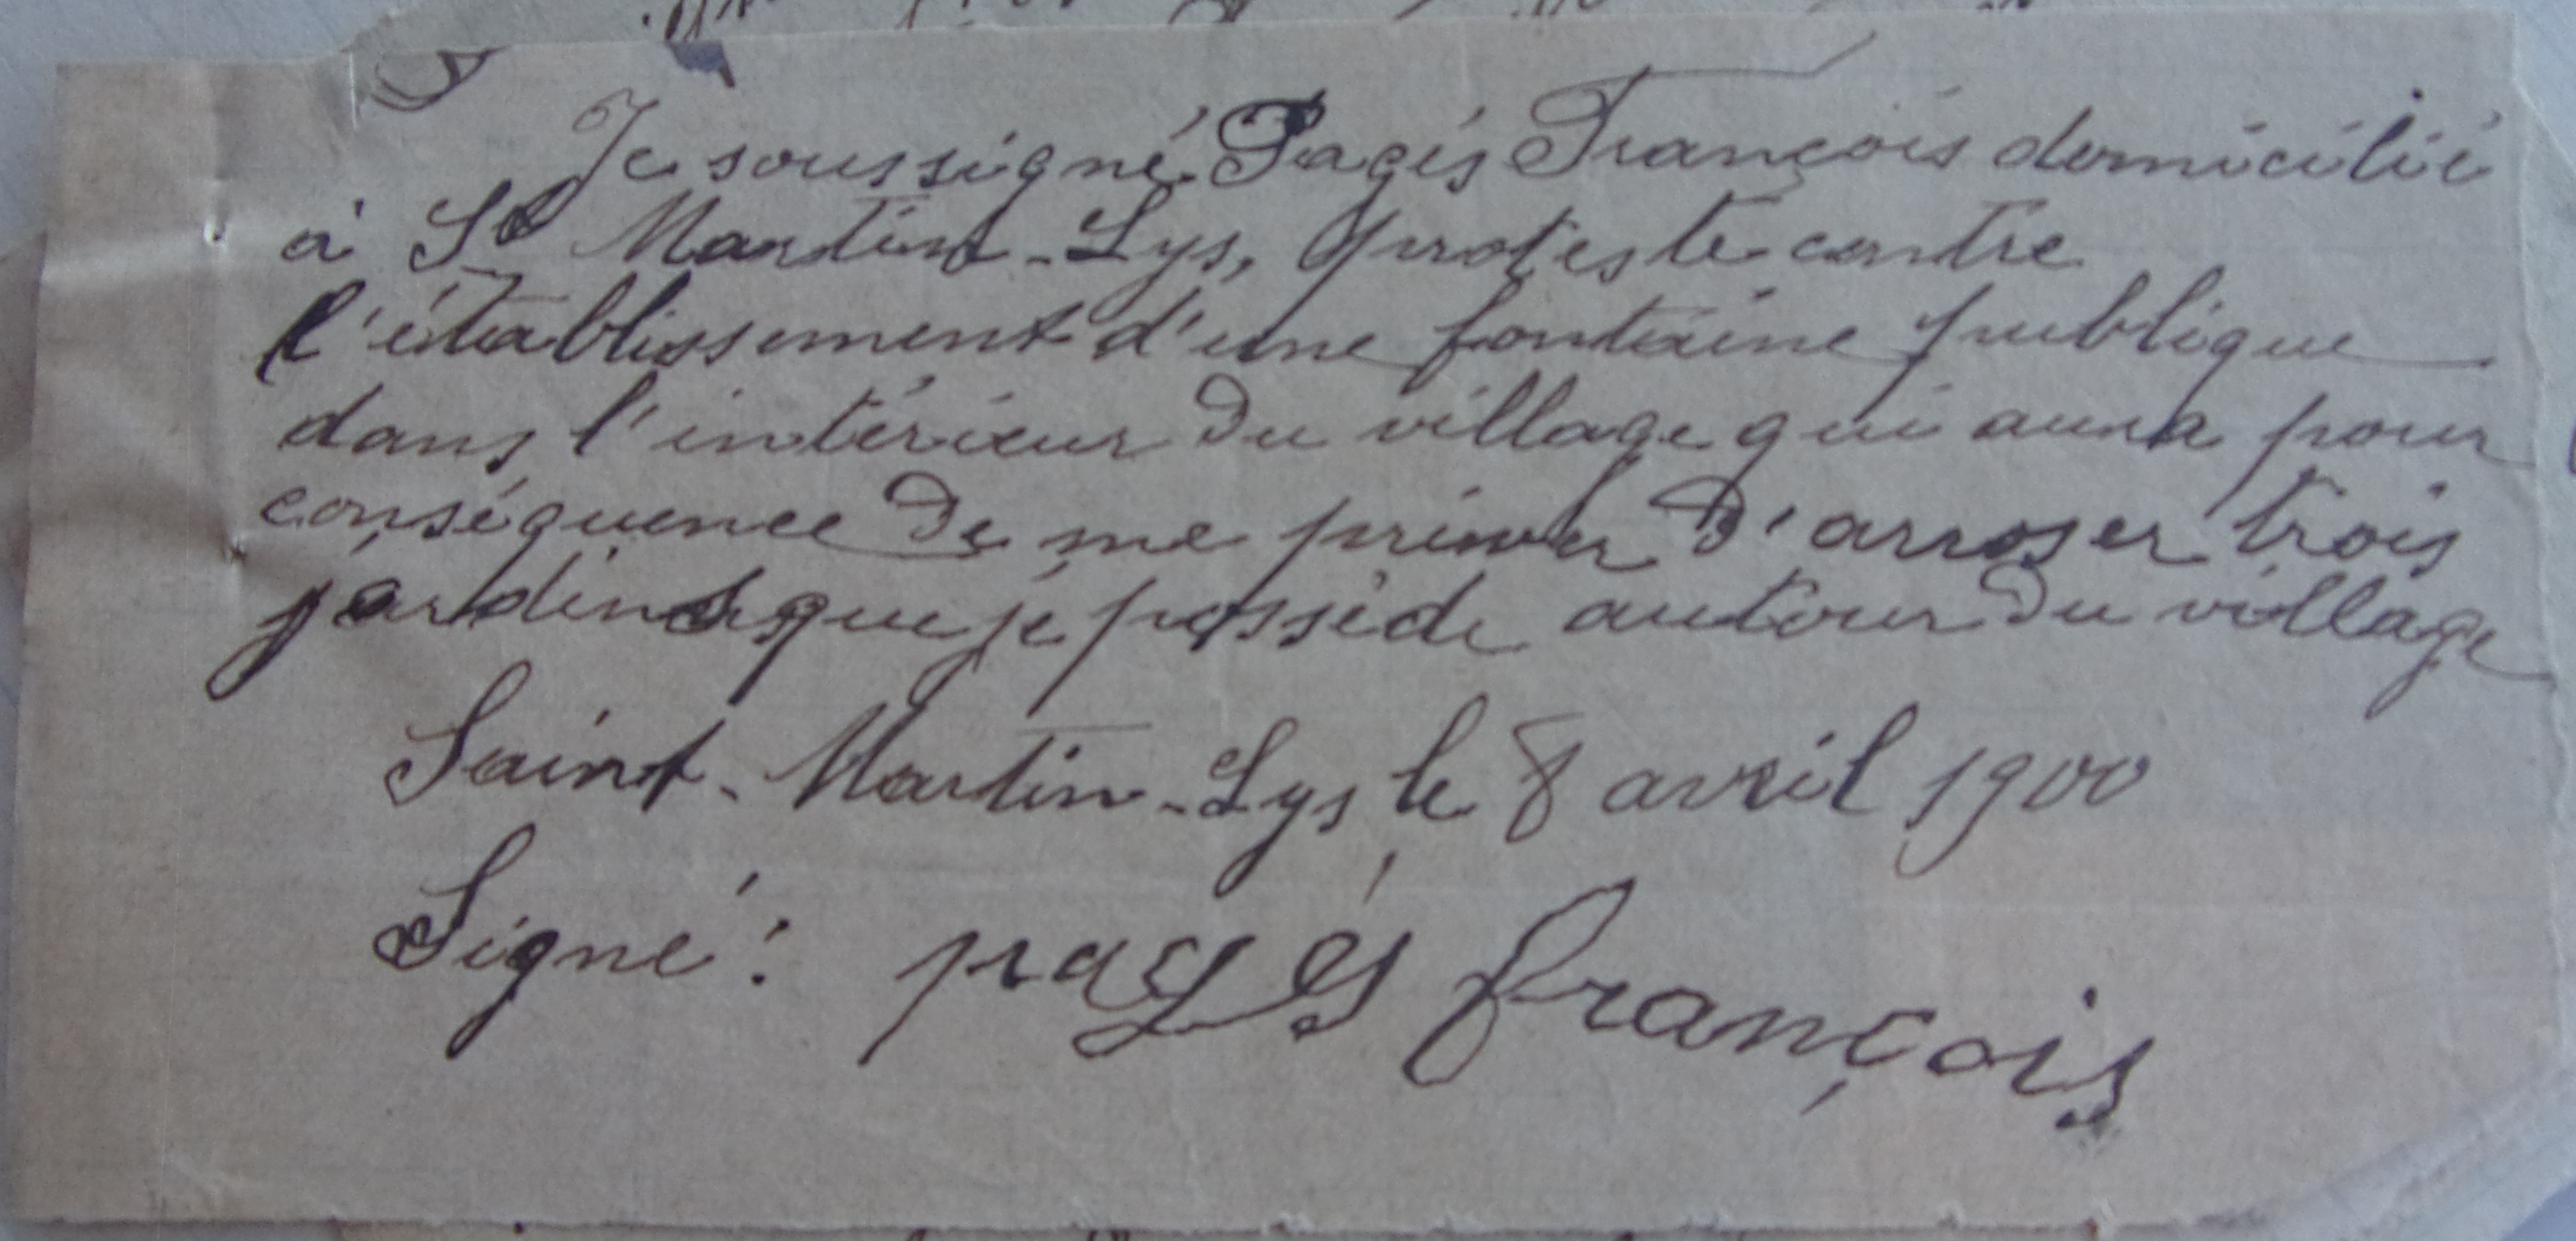 Je soussigné Pagés François domicilié
à St Martin-Lys, proteste contre
l'établissement d'une fontaine publique
dans l'intérieur du village qui aura pour
conséquence de me priver d'arroser trois
jardins que je possède autour du village
Saint-Martin-Lys le 8 avril 1900
Signé : pagés françois